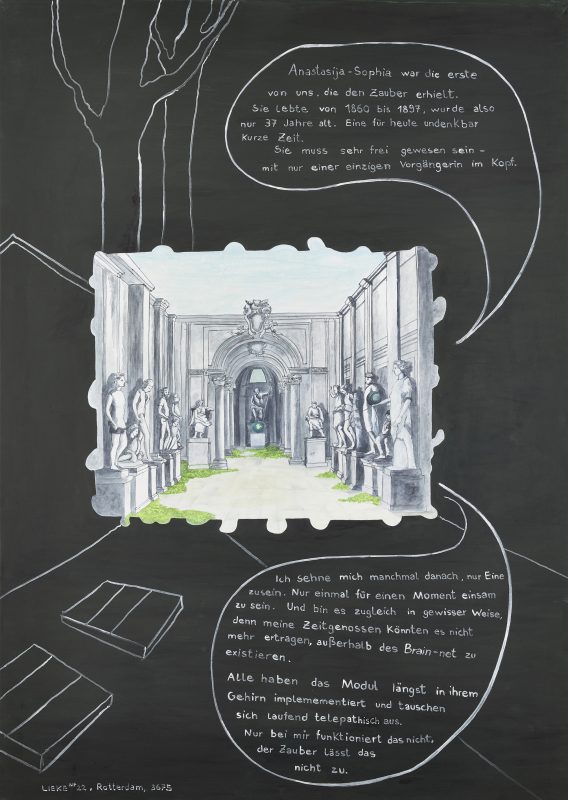 Anastasija-Sophia war die erste
von uns, die den Zauber erhielt.
Sie lebte von 1860 bis 1897, wurde also
nur 37 Jahre alt. Eine für heute undenkbar
kurze Zeit.
Sie muss sehr frei gewesen sein -
mit nur einer einzigen Vorgängerin im Kopf.
Ich sehne mich manchmal danach, nur Eine
zusein. Nur einmal für einen Moment einsam
zu sein. Und bin es zugleich in gewisser Weise,
denn meine Zeitgenossen könnten es nicht
mehr ertragen, außerhalb des Brain-net zu
existieren.
Alle haben das Modul längst in ihrem
Gehirn implementiert und tauschen
sich laufend telepathisch aus.
Nur bei mir funktioniert das nicht,
der Zauber lässt das
nicht zu.
LIEKE Nº22, Rotterdam, 3675